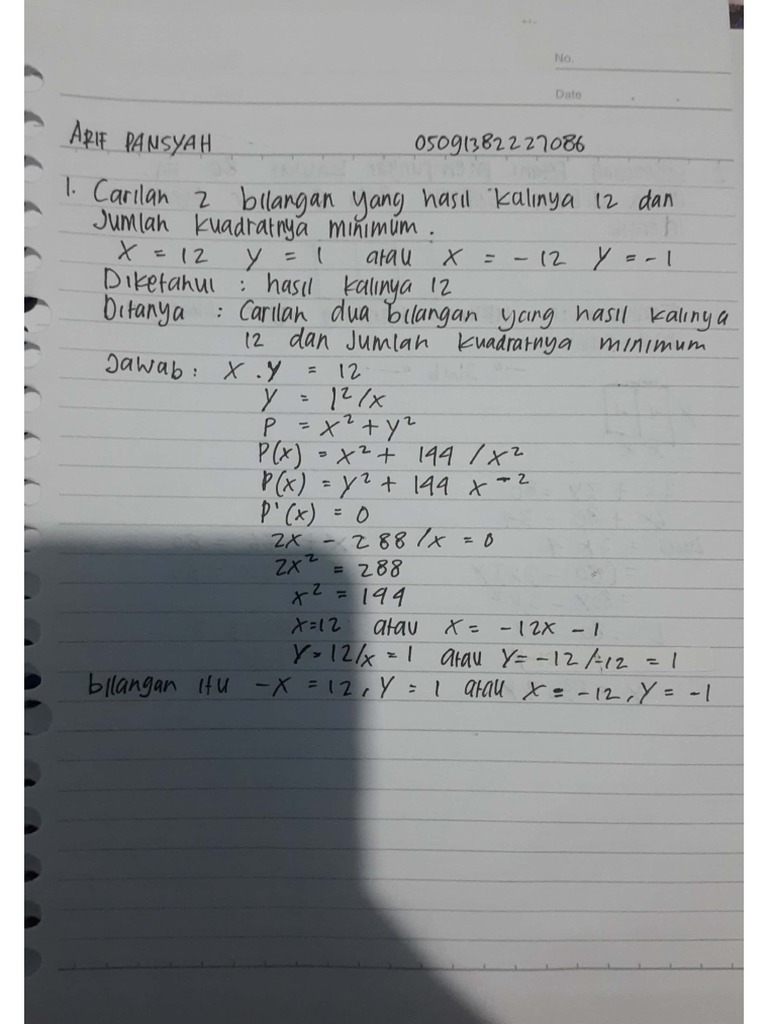 No.
Date
ARIF PANSYAH 05091382227086
1. Carilah 2 bilangan yang hasil kalinya 12 dan
Jumlah kuadratnya minimum.
X = 12 Y = 1 atau X = -12 Y = -1
Diketahui : hasil kalinya 12
Ditanya : Carilah dua bilangan yang hasil kalinya
12 dan Jumlah kuadratnya minimum
Jawab : X . Y = 12
Y = 12/x
P = x² + y²
P(x) = x² + 144 / x²
P(x) = y² + 144 x⁻²
P'(x) = 0
2x - 288/x = 0
2x² = 288
x² = 144
x=12 atau x = -12x - 1
Y = 12/x = 1 atau Y = -12/-12 = 1
bilangan itu -X = 12, Y = 1 atau X = -12, Y = -1